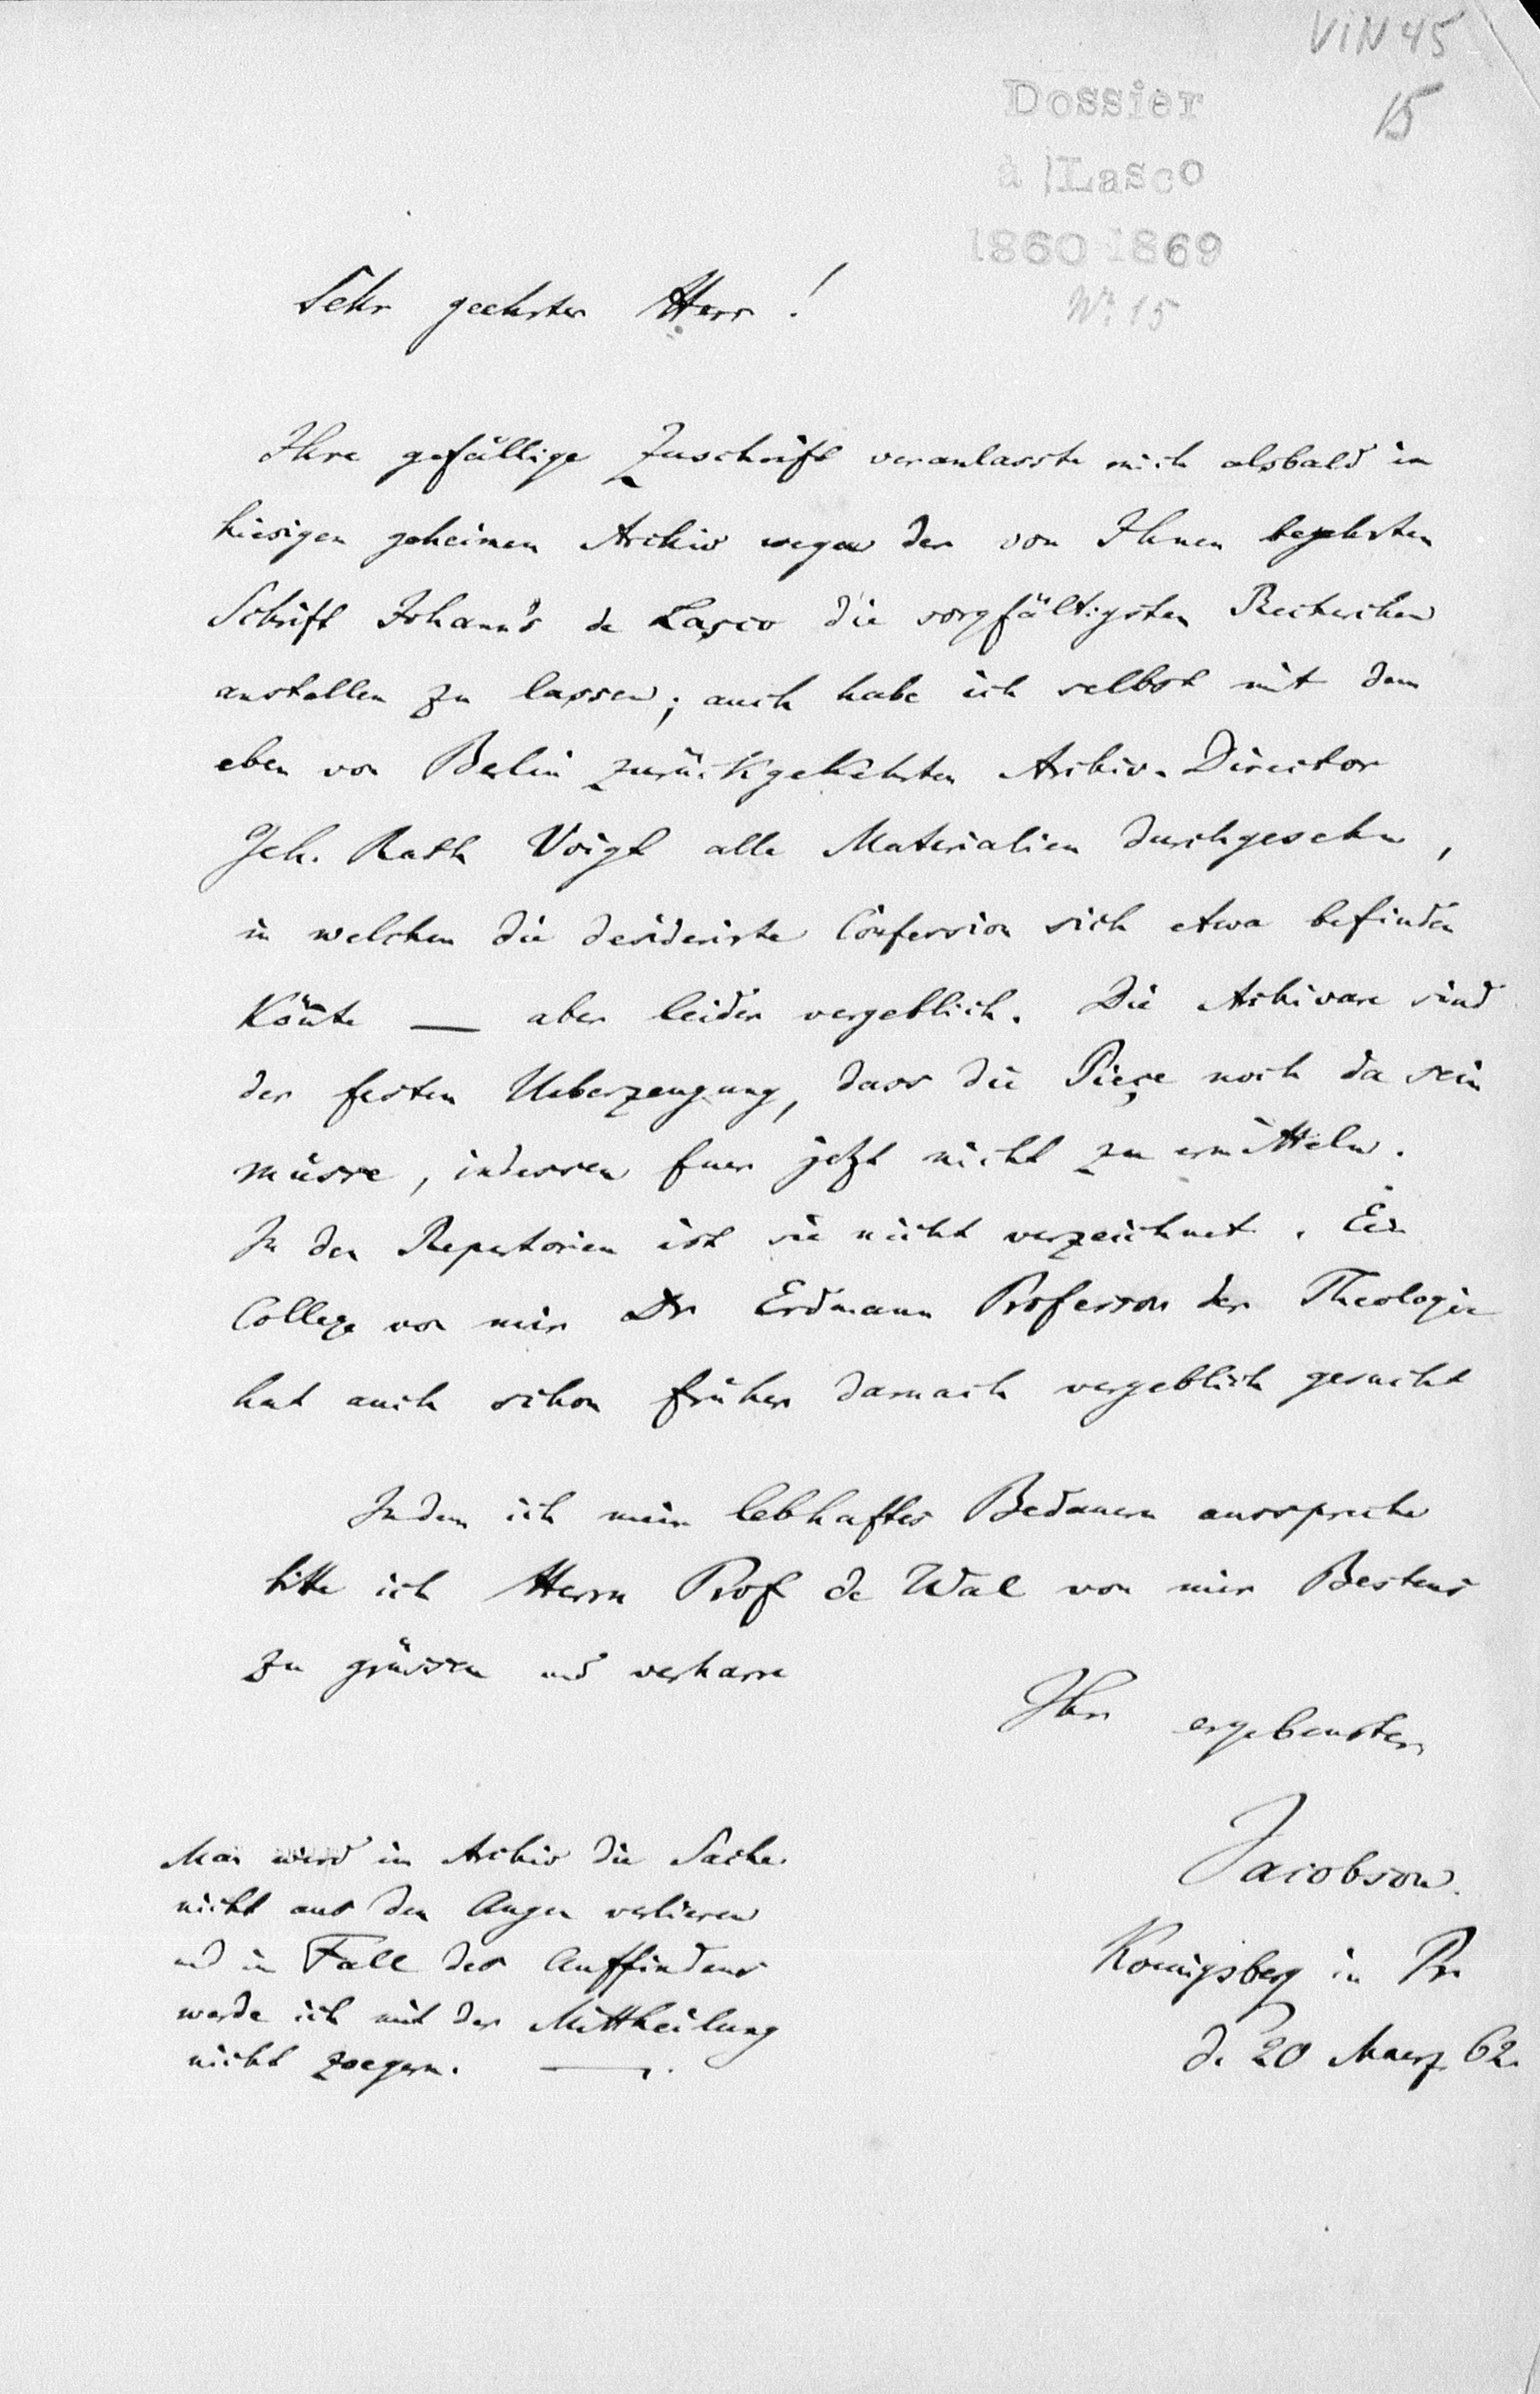 VIN 45
15
Dossier
à Lasco
1860-1869
No 15
Sehr geehrter Herr!
Ihre gefällige Zuschrift veranlasste mich alsbald im
hiesigen geheimen Archiv wegen der von Ihnen begehrten
Schrift Johann's de Lasco die sorgfältigsten Recherchen
anstellen zu lassen; auch habe ich selbst mit dem
eben von Berlin zurückgekehrten Archiv-Director
Geh. Rath Voigt alle Materialien durchgesehn,
in welchen die desiderirte Confession sich etwa befinden
könnte — aber leider vergeblich. Die Archivare sind
der festen Ueberzeugung, dass die Pieçe noch da sein
müsse, indessen fuer jetzt nicht zu ermitteln.
In den Repertorien ist sie nicht verzeichnet. Ein
College von mir Dr Erdmann Professor der Theologie
hat auch schon früher darnach vergeblich gesucht
Indem ich mein lebhaftes Bedauern ausspreche
bitte ich Herrn Prof de Wal von mir Bestens
zu grüssen und verharre
Ihr ergebenster
Jacobson.
Koenigsberg in Pr.
d. 20 Maerz 62.
Man wird im Archiv die Sache
nicht aus den Augen verlieren
und im Fall des Auffindens
werde ich mit der Mittheilung
nicht zoegern. —.